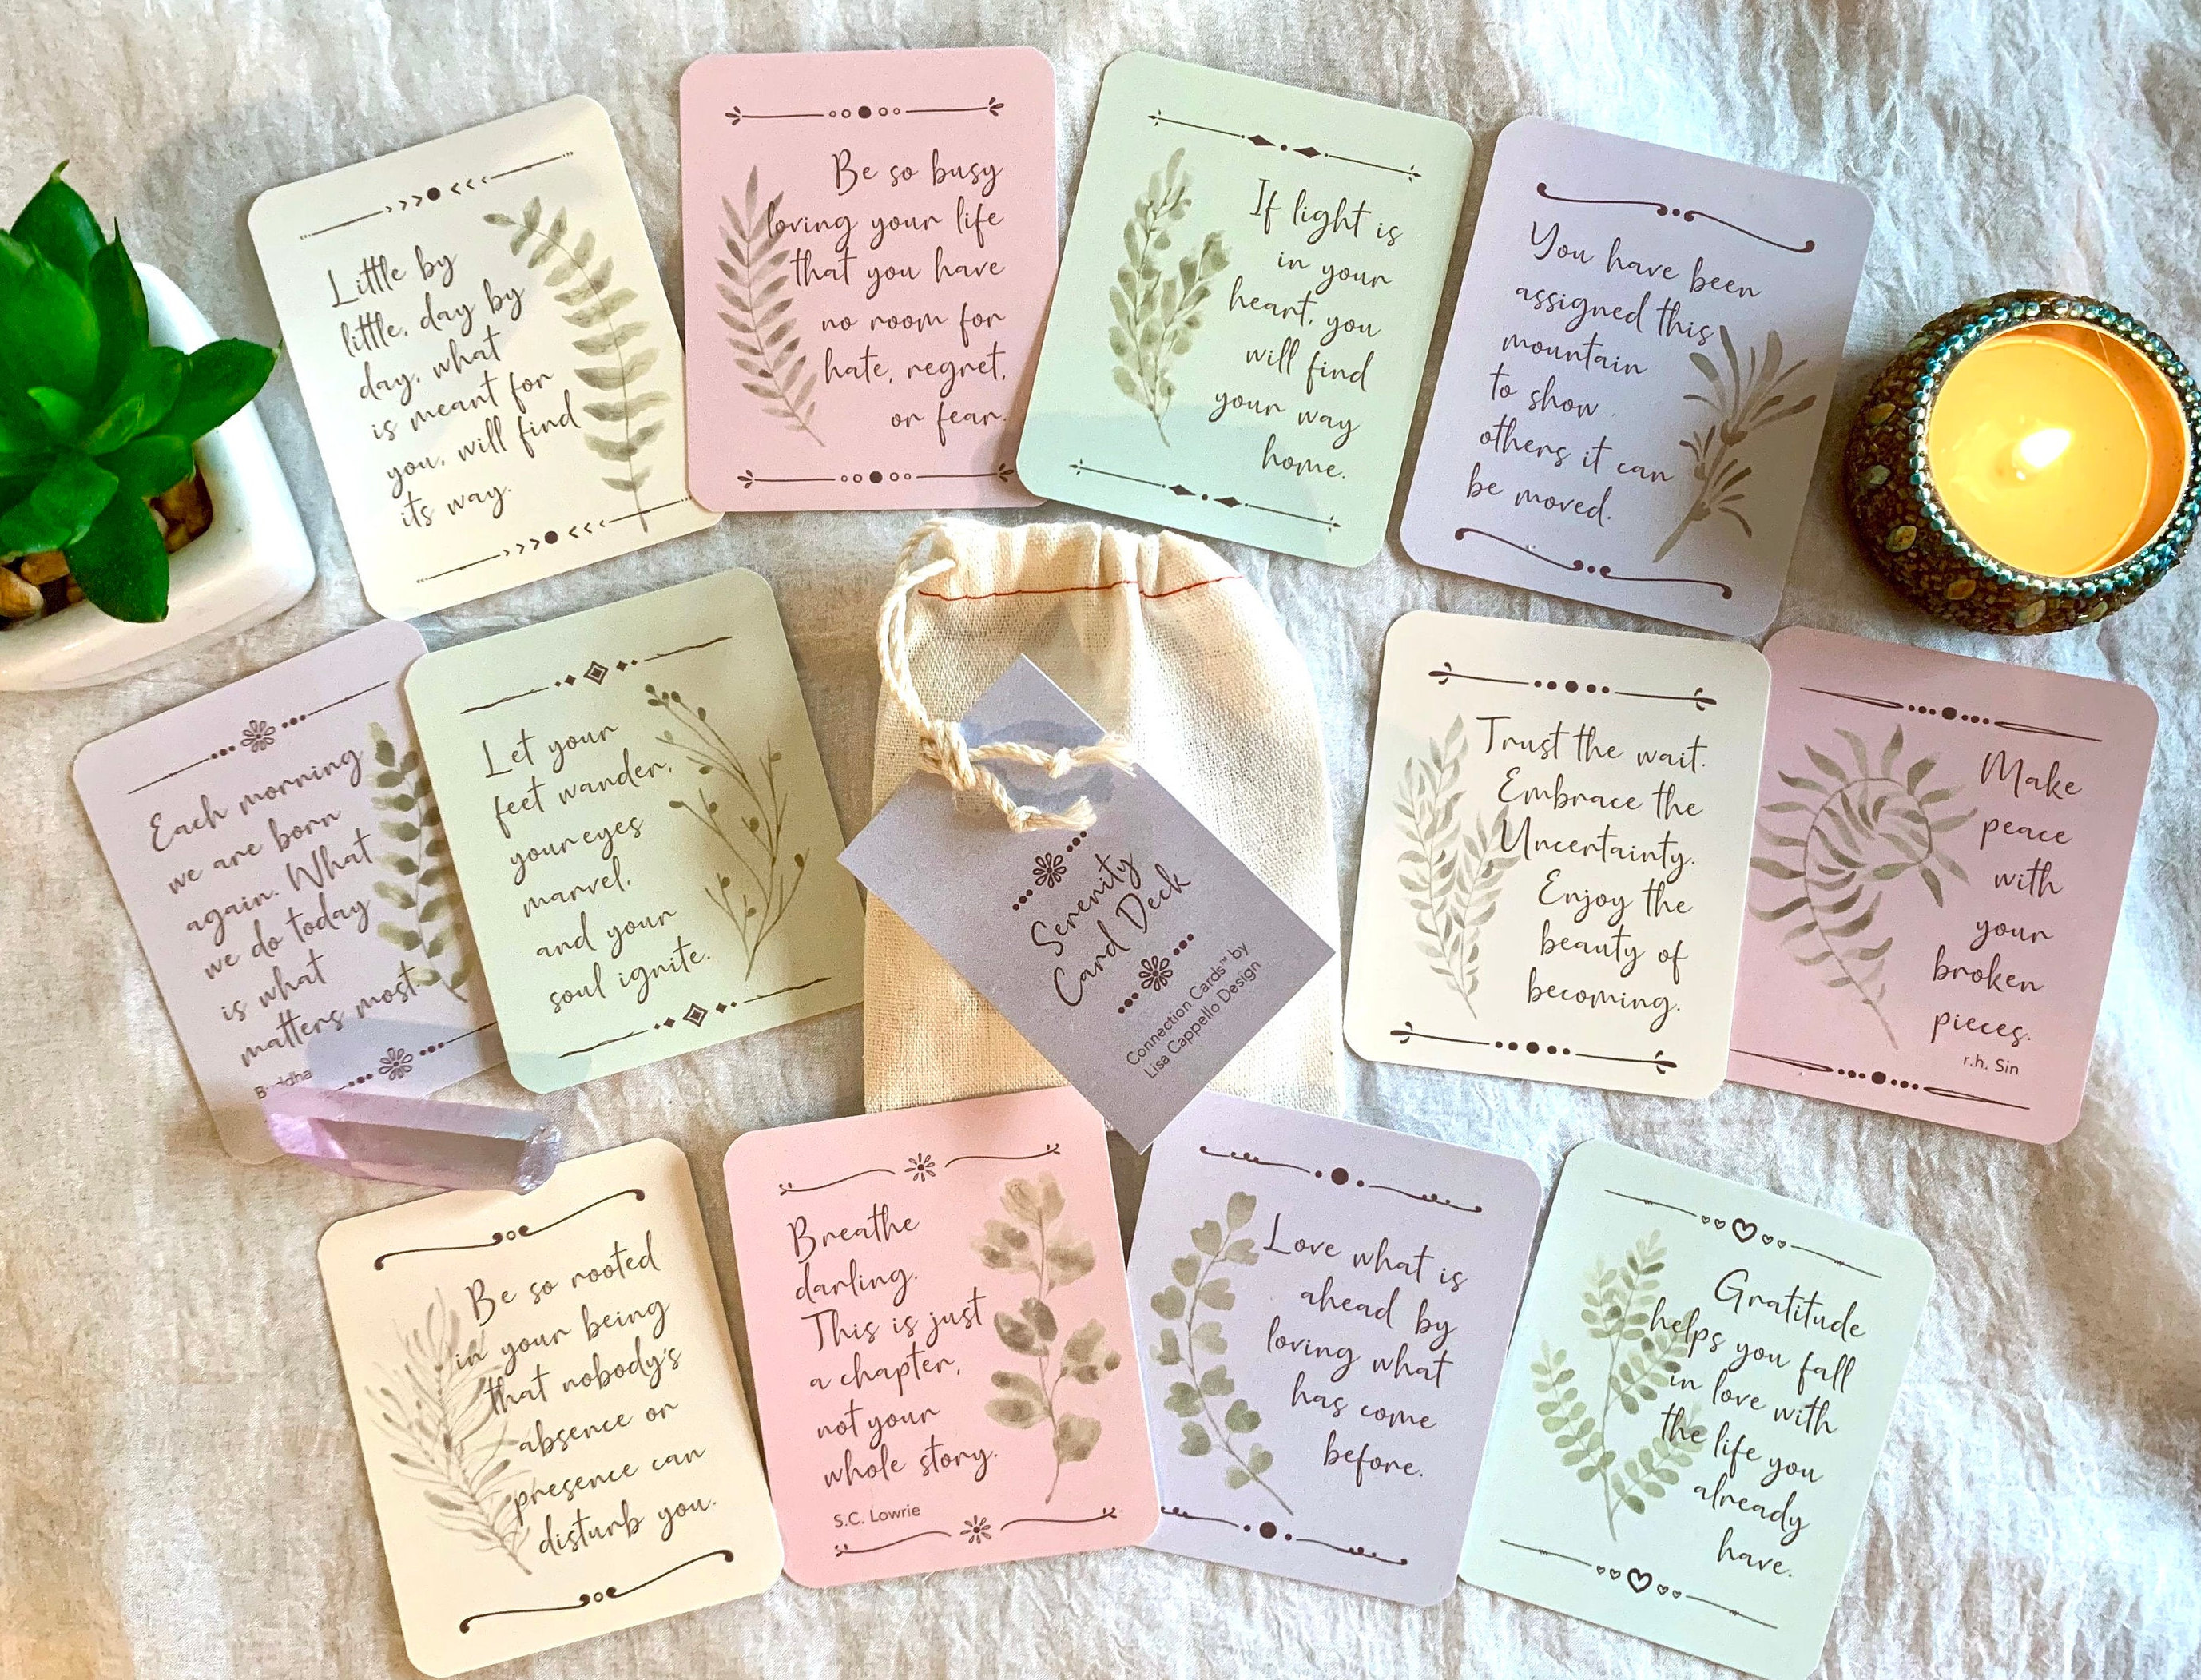 Little by
little, day by
day, what
is meant for
you, will find
its way.
Be so busy
loving your life
that you have
no room for
hate, regret,
or fear.
If light is
in your
heart, you
will find
your way
home.
You have been
assigned this
mountain
to show
others it can
be moved.
Each morning
we are born
again. What
we do today
is what
matters most
Buddha
Let your
feet wander,
your eyes
marvel,
and your
soul ignite.
Serenity
Card Deck
Connection Cards™ by
Lisa Cappello Design
Trust the wait.
Embrace the
Uncertainty.
Enjoy the
beauty of
becoming.
Make
peace
with
your
broken
pieces.
r.h. Sin
Be so rooted
in your being
that nobody's
absence or
presence can
disturb you.
Breathe
darling.
This is just
a chapter,
not your
whole story.
S.C. Lowrie
Love what is
ahead by
loving what
has come
before.
Gratitude
helps you fall
in love with
the life you
already
have.